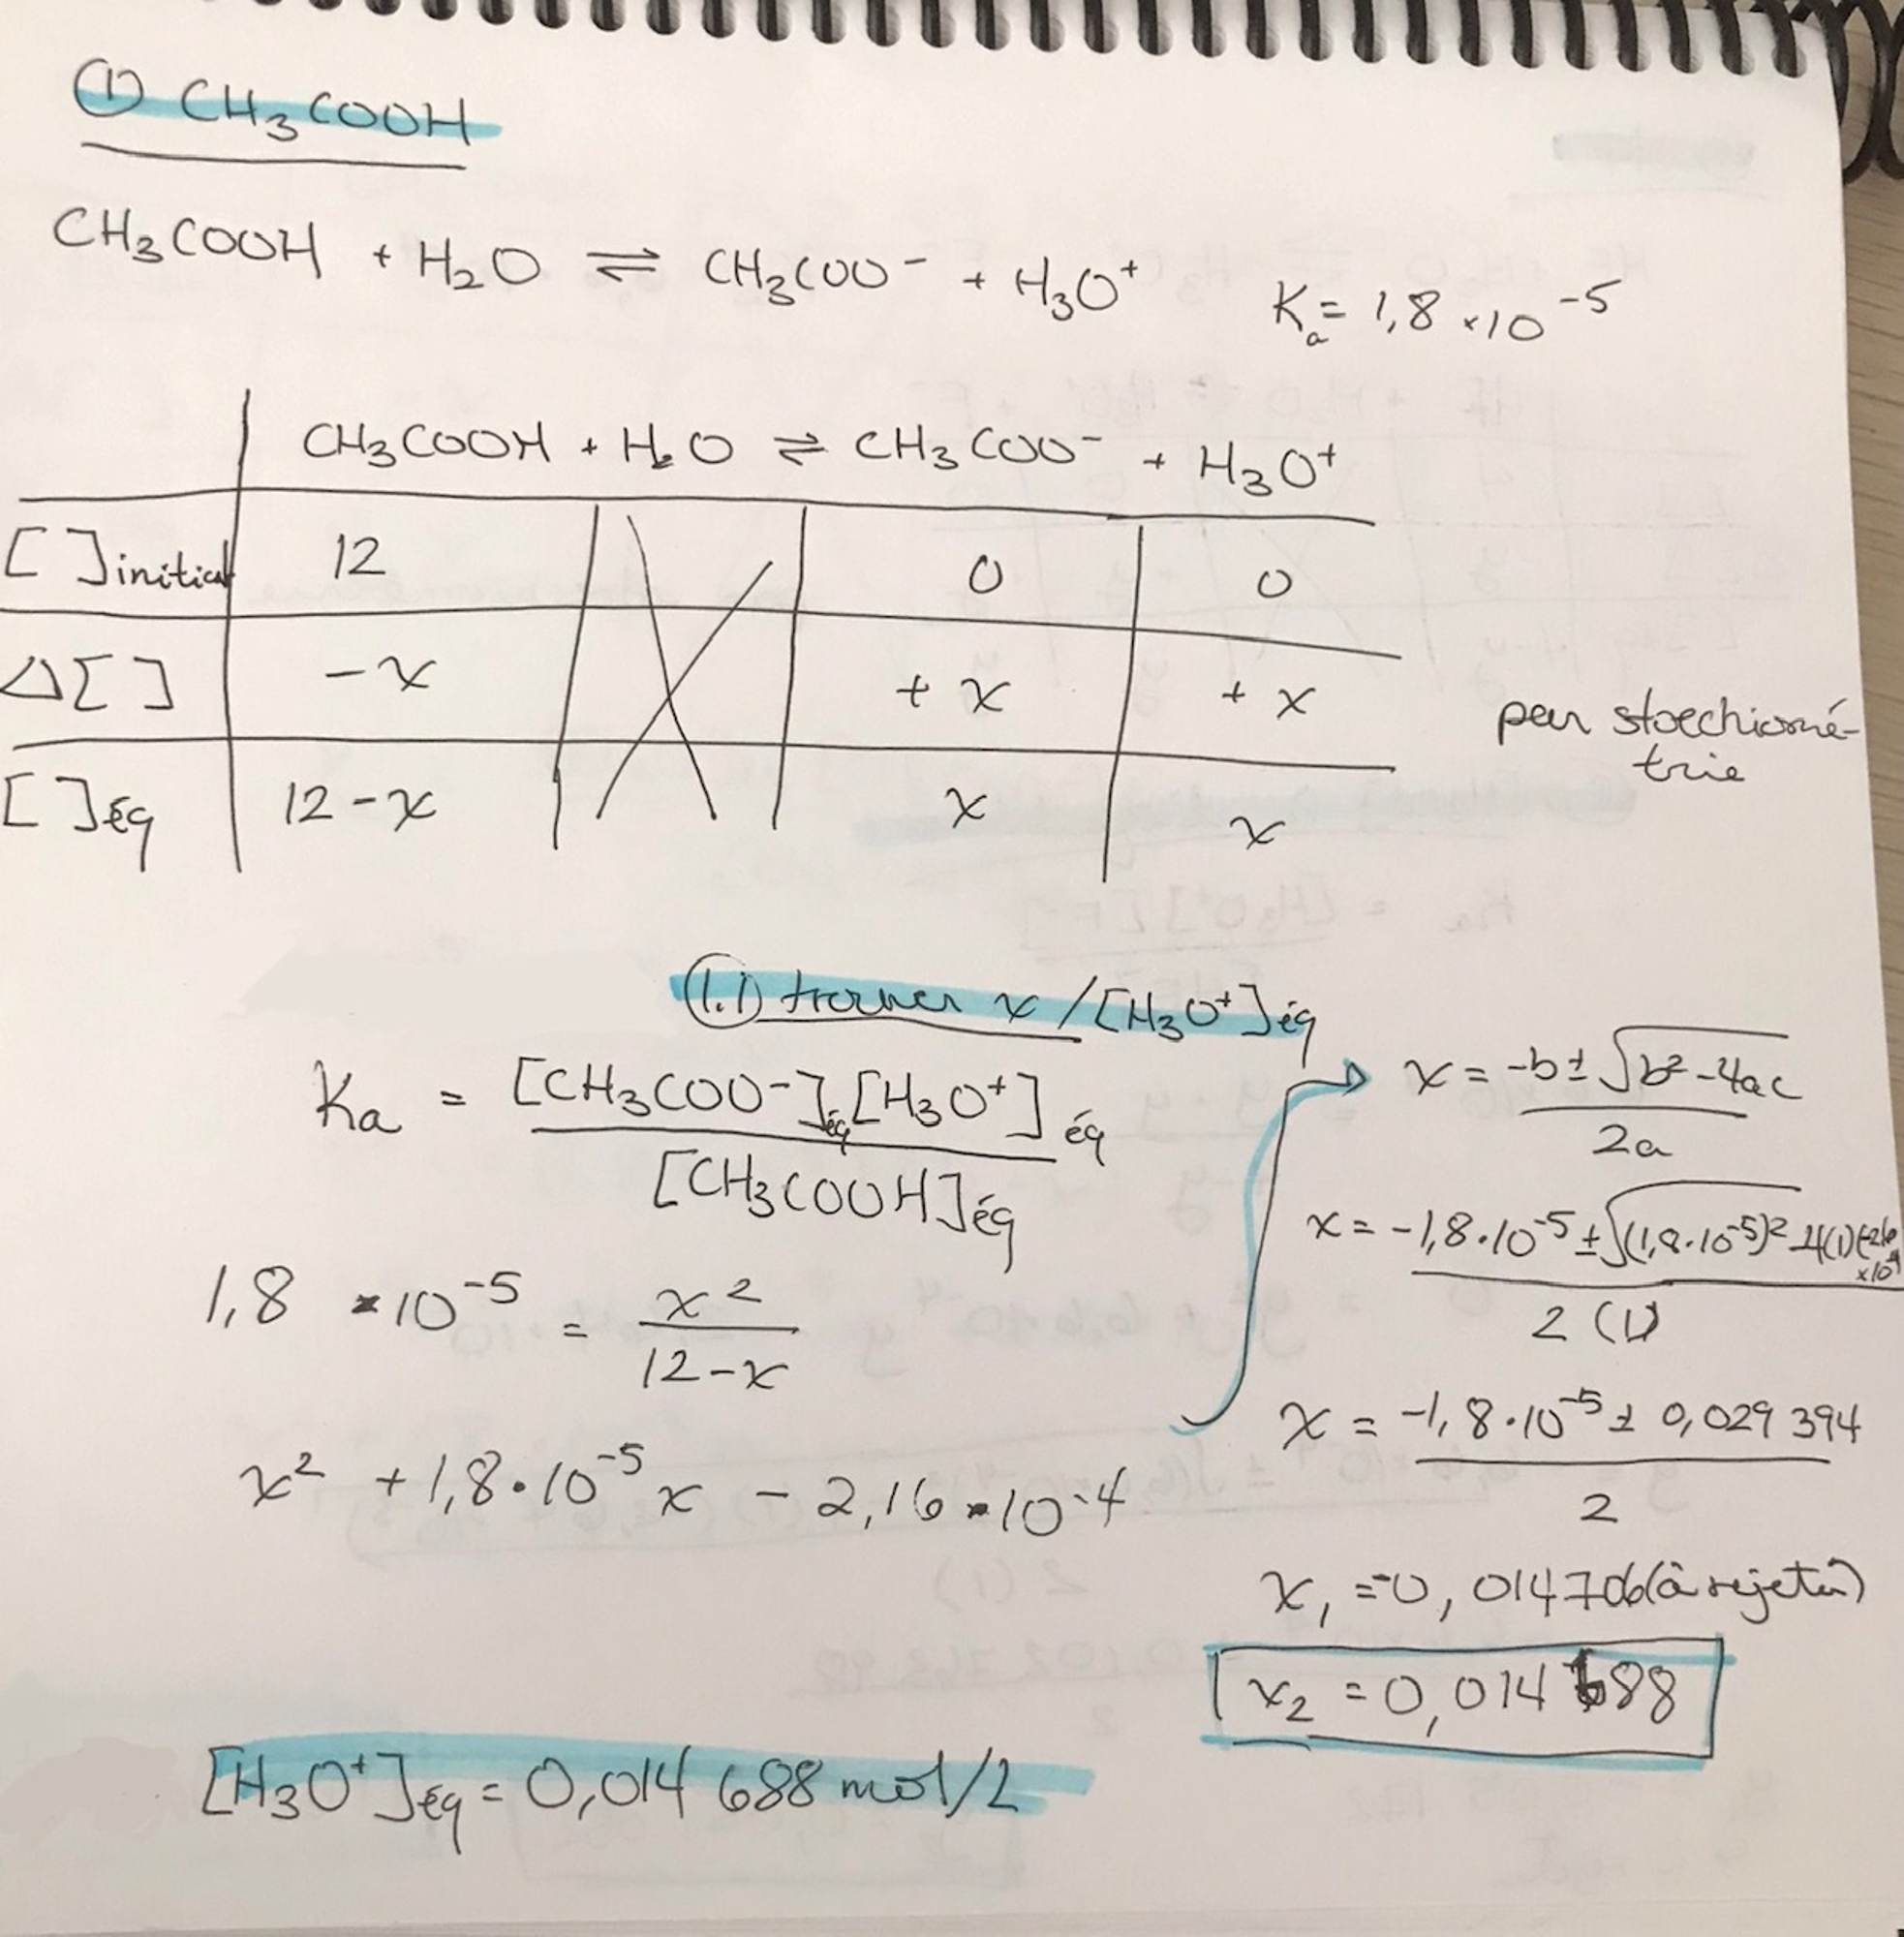 ① CH₃COOH
CH₃COOH + H₂O ⇌ CH₃COO⁻ + H₃O⁺ Kₐ = 1,8 × 10⁻⁵
CH₃COOH + H₂O ⇌ CH₃COO⁻ + H₃O⁺
[ ]initial 12 0 0
Δ[ ] -x + x + x
par stoechiomé-
trie
[ ]éq 12-x x x
1.1) trouver x / [H₃O⁺]éq
Ka = [CH₃COO⁻]éq [H₃O⁺]éq
[CH₃COOH]éq
1,8 × 10⁻⁵ = x²
12-x
x² + 1,8·10⁻⁵ x - 2,16·10⁻⁴
x = -b ± √b²-4ac
2a
x = -1,8·10⁻⁵ ± √(1,8·10⁻⁵)² -4(1)(-2,16
×10⁻⁴
2 (1)
x = -1,8·10⁻⁵ ± 0,029 394
2
x₁ = -0,014706 (à rejeter)
x₂ = 0,014 688
[H₃O⁺]éq = 0,014 688 mol/L